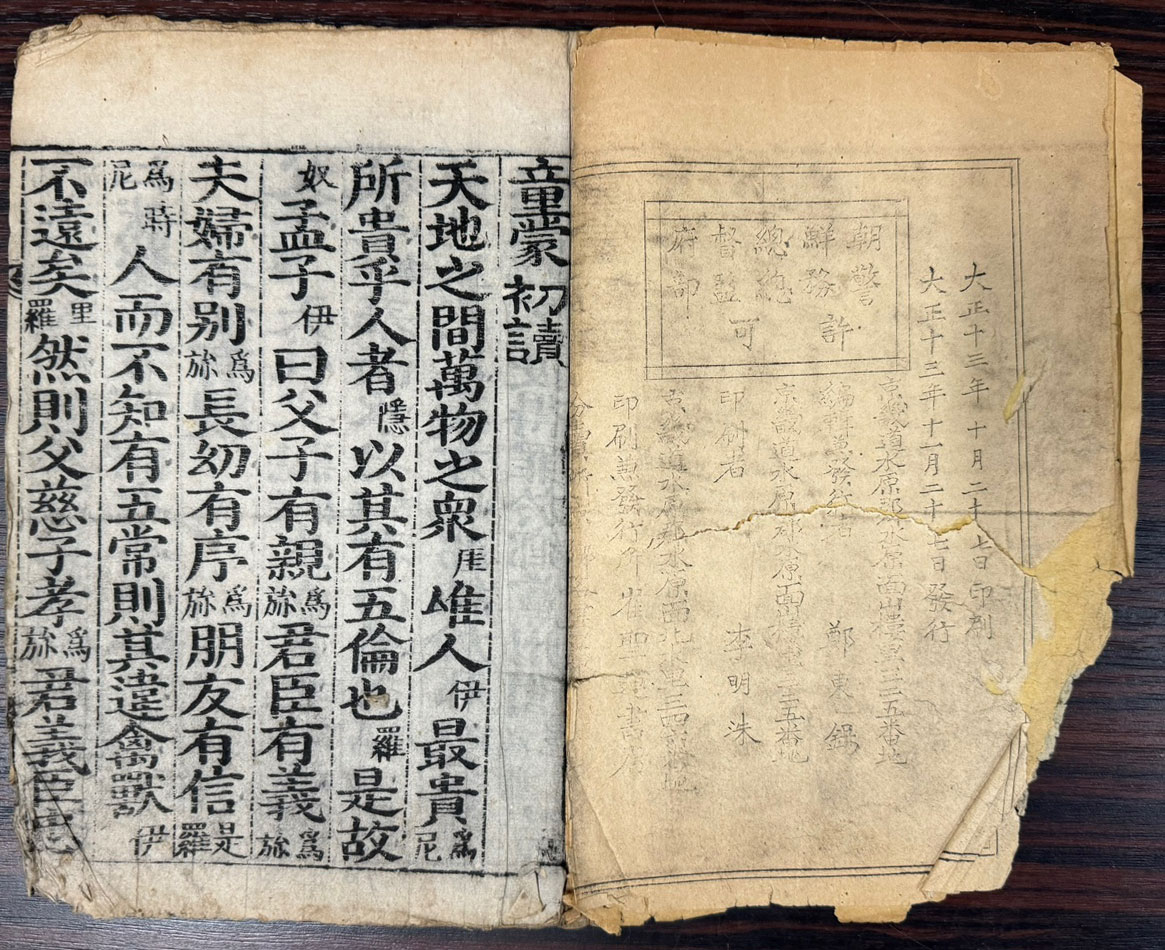 大正十三年十月二十七日印刷
大正十三年十一月二十七日發行
朝鮮總督府
警務總監部
許可
道水原郡水原面山樓里三五番地
編輯兼發行者 鄭東鎬
京畿道水原郡水原面山樓里三五番地
印刷者 李明洙
京畿道水原郡水原面北水里三四
印刷兼發行所 崔 書店
分賣所
童蒙初讀
天地之間萬物之衆厓唯人伊最貴爲尼
所貴乎人者隱以其有五倫也羅是故
奴孟子伊曰父子有親爲旀君臣有義爲旀
夫婦有别爲旀長幼有序爲旀朋友有信是羅
爲蒔尼人而不知有五常則其違禽獸伊
不遠矣里羅然則父慈子孝爲旀君義臣忠